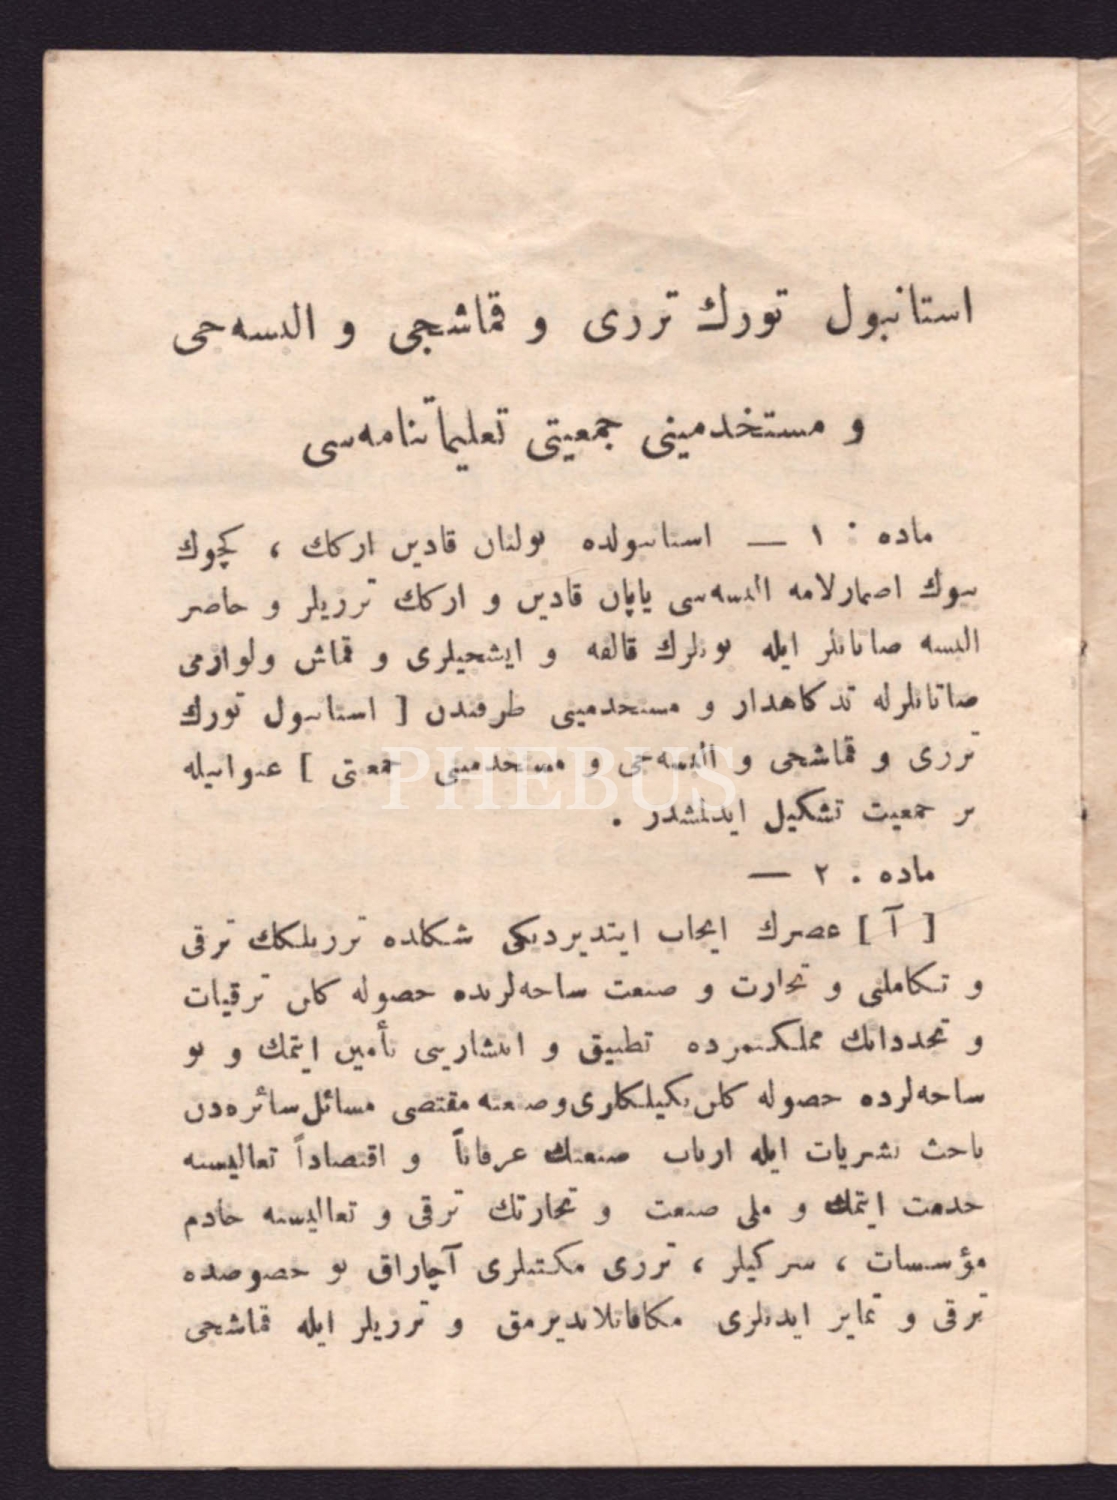 استانبول تورك ترزی و قماشجی و البسه‌جی
و مستخدمینی جمعیتی تعلیماتنامه‌سی
ماده : ١ — استانبولده بولنان قادین اركك ، كچوك
بیوك اصمارلامه البسه‌سی یاپان قادین و اركك ترزیلر و حاضر
البسه صاتانلر ایله بونلرك قالفه و ایشجیلری و قماش و لوازمی
صاتانلرله تذكاهدار و مستخدمینی طرفندن [ استانبول تورك
ترزی و قماشجی و البسه‌جی و مستخدمینی جمعیتی ] عنوانیله
بر جمعیت تشكیل ایدلمشدر .
PHEBUS
ماده : ٢ —
[ آ ] عصرك ایجاب ایتدیردیكی شكلده ترزیلكك ترقی
و تكاملنی و تجارت و صنعت ساحه‌لرنده حصوله كلن ترقیات
و تجدداتك مملكتمزده تطبیق و انتشارینی تأمین ایتمك و بو
ساحه‌لرده حصوله كلن یكیلكلری و صنعته مقتضی مسائل سائره‌دن
باحث نشریات ایله ارباب صنعتك عرفاناً و اقتصاداً تعالیسنه
خدمت ایتمك و ملی صنعت و تجارتك ترقی و تعالیسنه خادم
مؤسسات ، سركیلر ، ترزی مكتبلری آچاراق بو خصوصده
ترقی و تمایز ایدنلری مكافاتلاندیرمق و ترزیلر ایله قماشجی